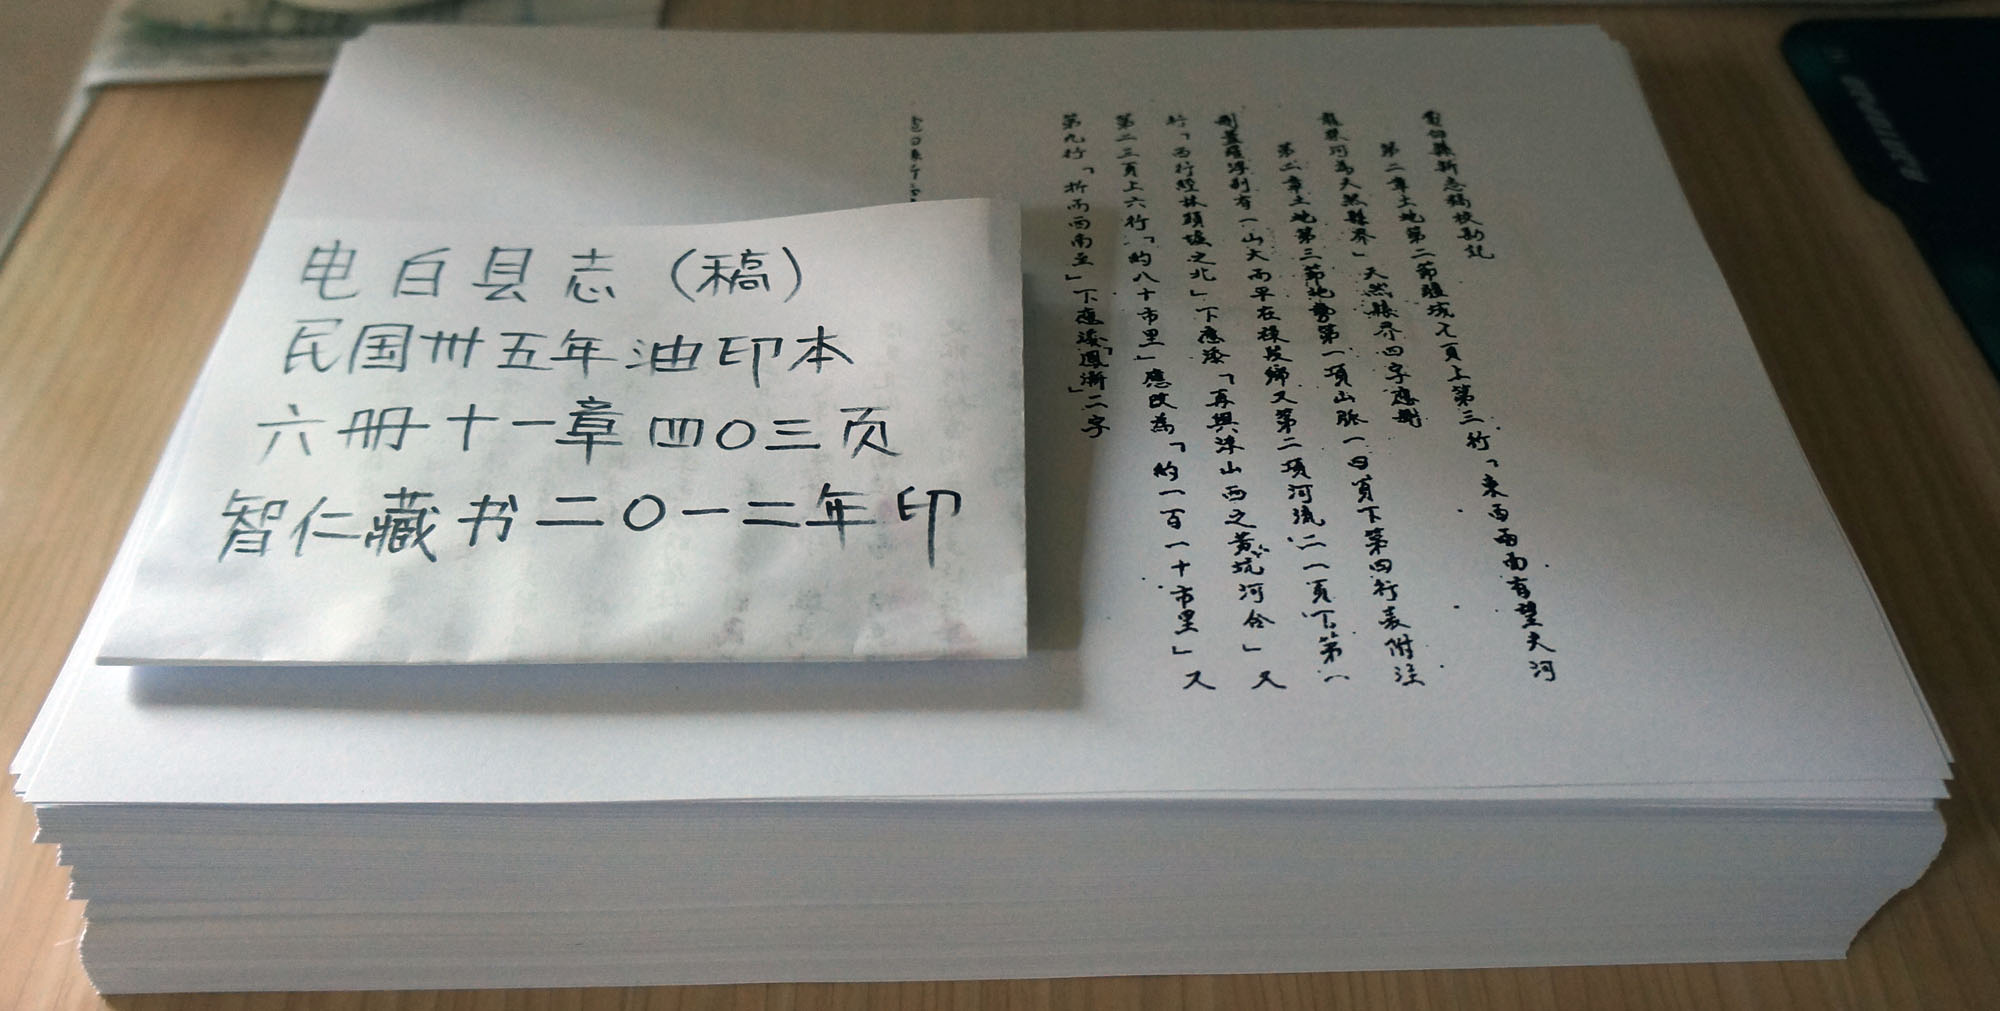 电白县志（稿）
民国卅五年油印本
六册十一章四〇三页
智仁藏书二〇一二年印
電白縣新志稿校勘記
第二章土地第二節疆域七頁上第三行「東西兩面有望夫河
龍珠河為天然縣界」天然縣界四字應刪
第二章土地第三節地勢第一項山脈一四頁下第四行表附注
刪蓋羅浮別有一山大而早在後又第二項河流二一頁下第一
行「西行經林頭墟之北」下應添「再與深山西之黃坑河合」又
第二三頁上六行「約八十市里」應改為「約一百一十市里」又
第九行「折而西南至」下應添「鳳漸」二字